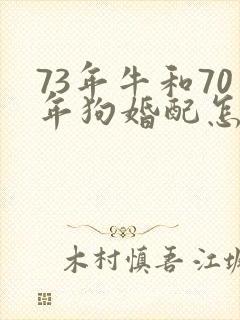 73年牛和70
年狗婚配怎
木村慎吾江坂